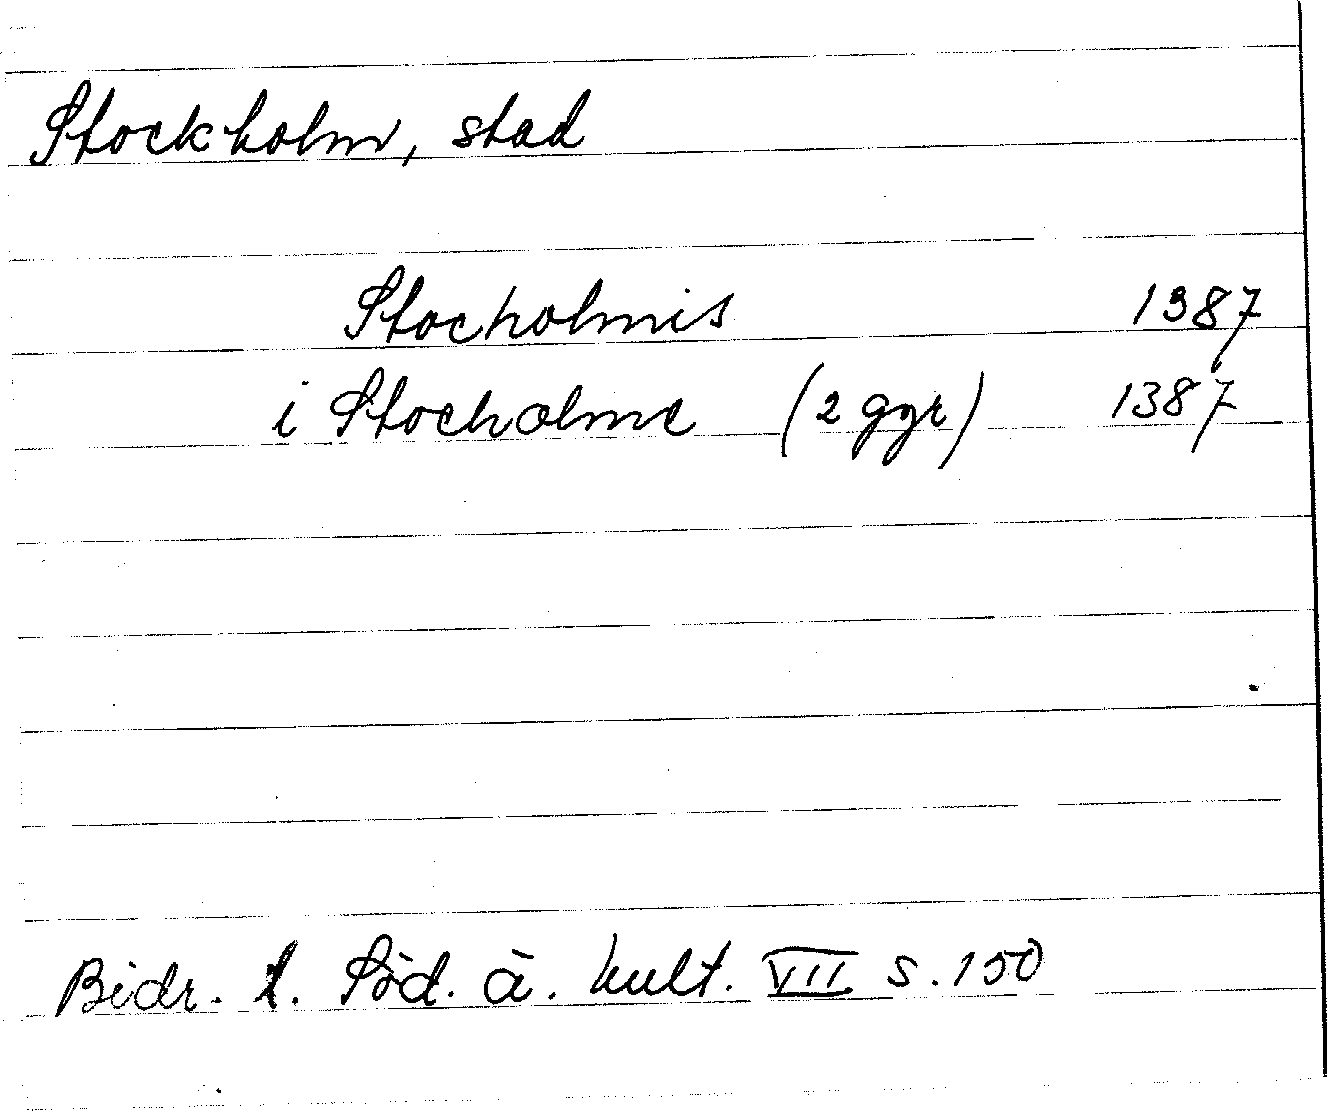 Stockholm, stad
Stocholmis 1387
i Stocholme (2 ggr) 1387
Bidr. t. Söd. ä. kult. VII s. 150